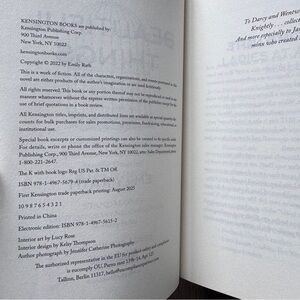 KENSINGTON BOOKS are published by:
Kensington Publishing Corp.
900 Third Avenue
New York, NY 10022
kensingtonbooks.com
Copyright © 2022 by Emily Rath
This is a work of fiction. All of the characters, organizations, and events portrayed in this
novel are either products of the author's imagination or are used fictionally.
All rights reserved. No part of this book or any portion thereof may be reproduced or used in any
manner whatsoever without the express written permission of the publisher except for the
use of brief quotations in a book review.
All Kensington titles, imprints, and distributed lines are available at special quantity dis-
counts for bulk purchases for sales promotions, premiums, fundraising, educational, or
institutional use.
Special book excerpts or customized printings can also be created to fit specific needs.
For details, write or phone the office of the Kensington sales manager: Kensington
Publishing Corp., 900 Third Avenue, New York, NY 10022, attn: Sales Department; phone
1-800-221-2647.
The K with book logo Reg US Pat. & TM Off.
ISBN 978-1-4967-5679-4 (trade paperback)
First Kensington trade paperback printing: August 2025
10 9 8 7 6 5 4 3 2 1
Printed in China
Electronic edition: ISBN 978-1-4967-5615-2
Interior art by Lucy Rose
Interior design by Kelsy Thompson
Author photograph by Jennifer Catherine Photography
The authorized representative in the EU for product safety and compliance
is eucomply OU, Parnu mnt 139b-14, Apt 123
Tallinn, Berlin 11317, hello@eucompliancepartner.com
To Darcy and Wentwo
Knightly . . . collec
And more especially to Ja
minx who created